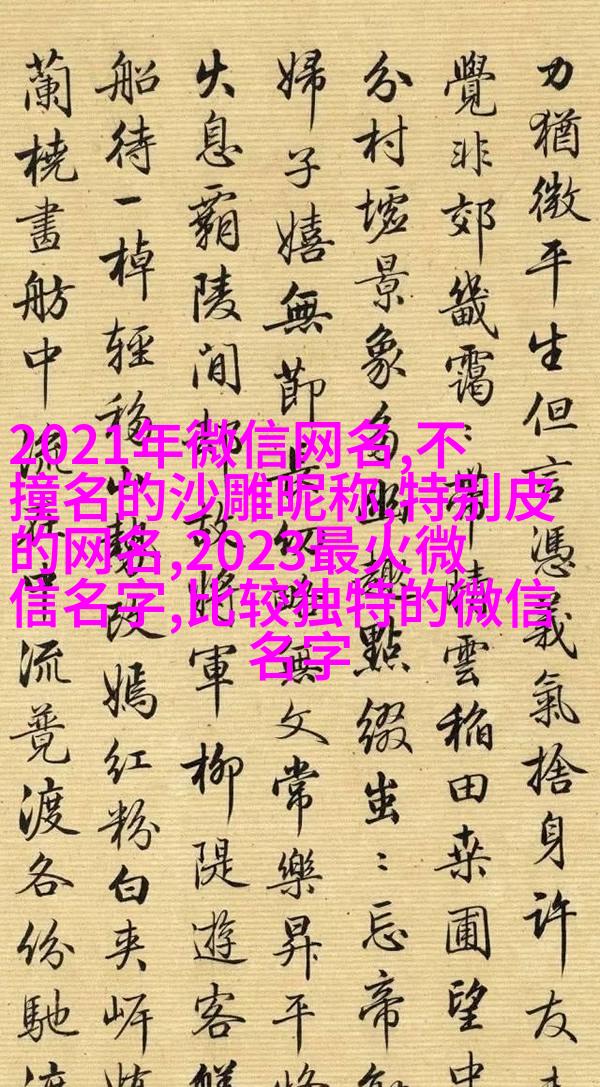 2021年微信网名,不
撞名的沙雕昵称,特别皮
的网名,2023最火微
信名字,比较独特的微信
名字
力猶微平生但言憑義氣捨身許友
覺非郊畿靄：帶晴雲稲田桒圃望中
分村墟景象多幽趣點綴出：忘帝
婦子嬉無節無文常樂昇平
火息霸陵間將軍柳隄遊客
船待一棹輕移山勢改嫣紅粉白夹岍
蘭橈畫舫中流流覽渡各份馳